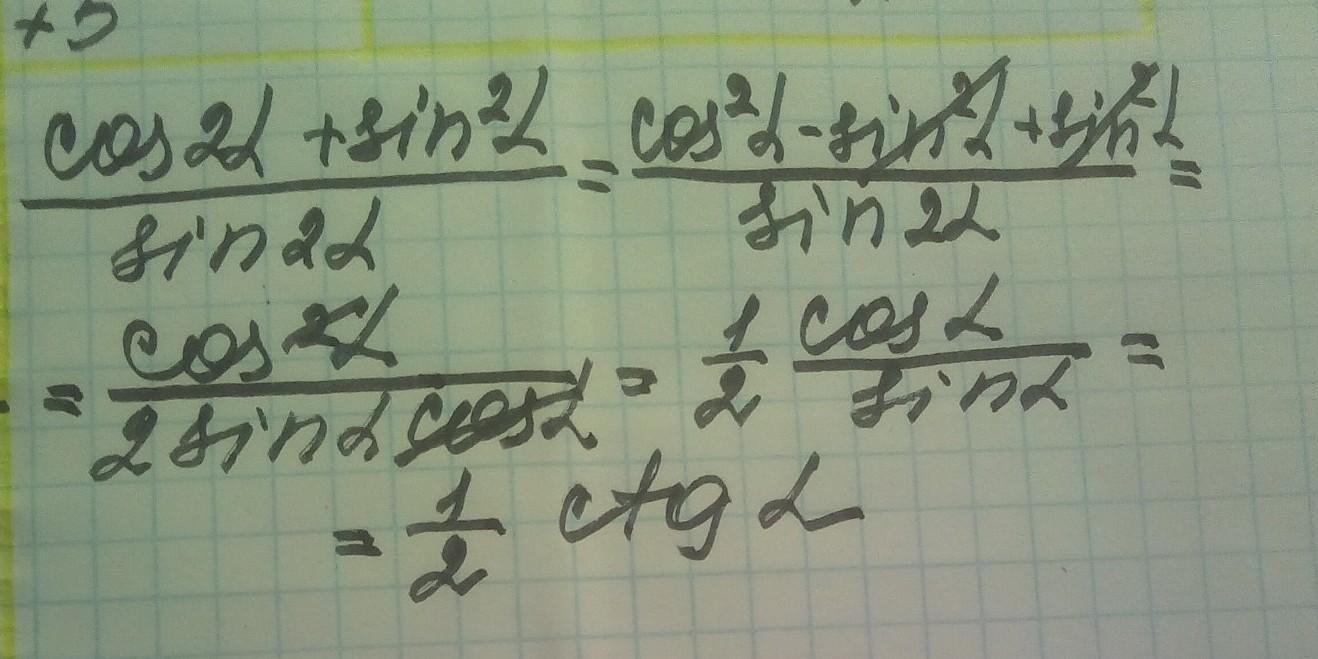 +5
(cos2α + sin²α)/(sin2α) = (cos²α - sin²α + sin²α)/(sin2α) =
= (cos²α)/(2sinα cosα) = 1/2 (cosα)/(sinα) =
= 1/2 ctg α